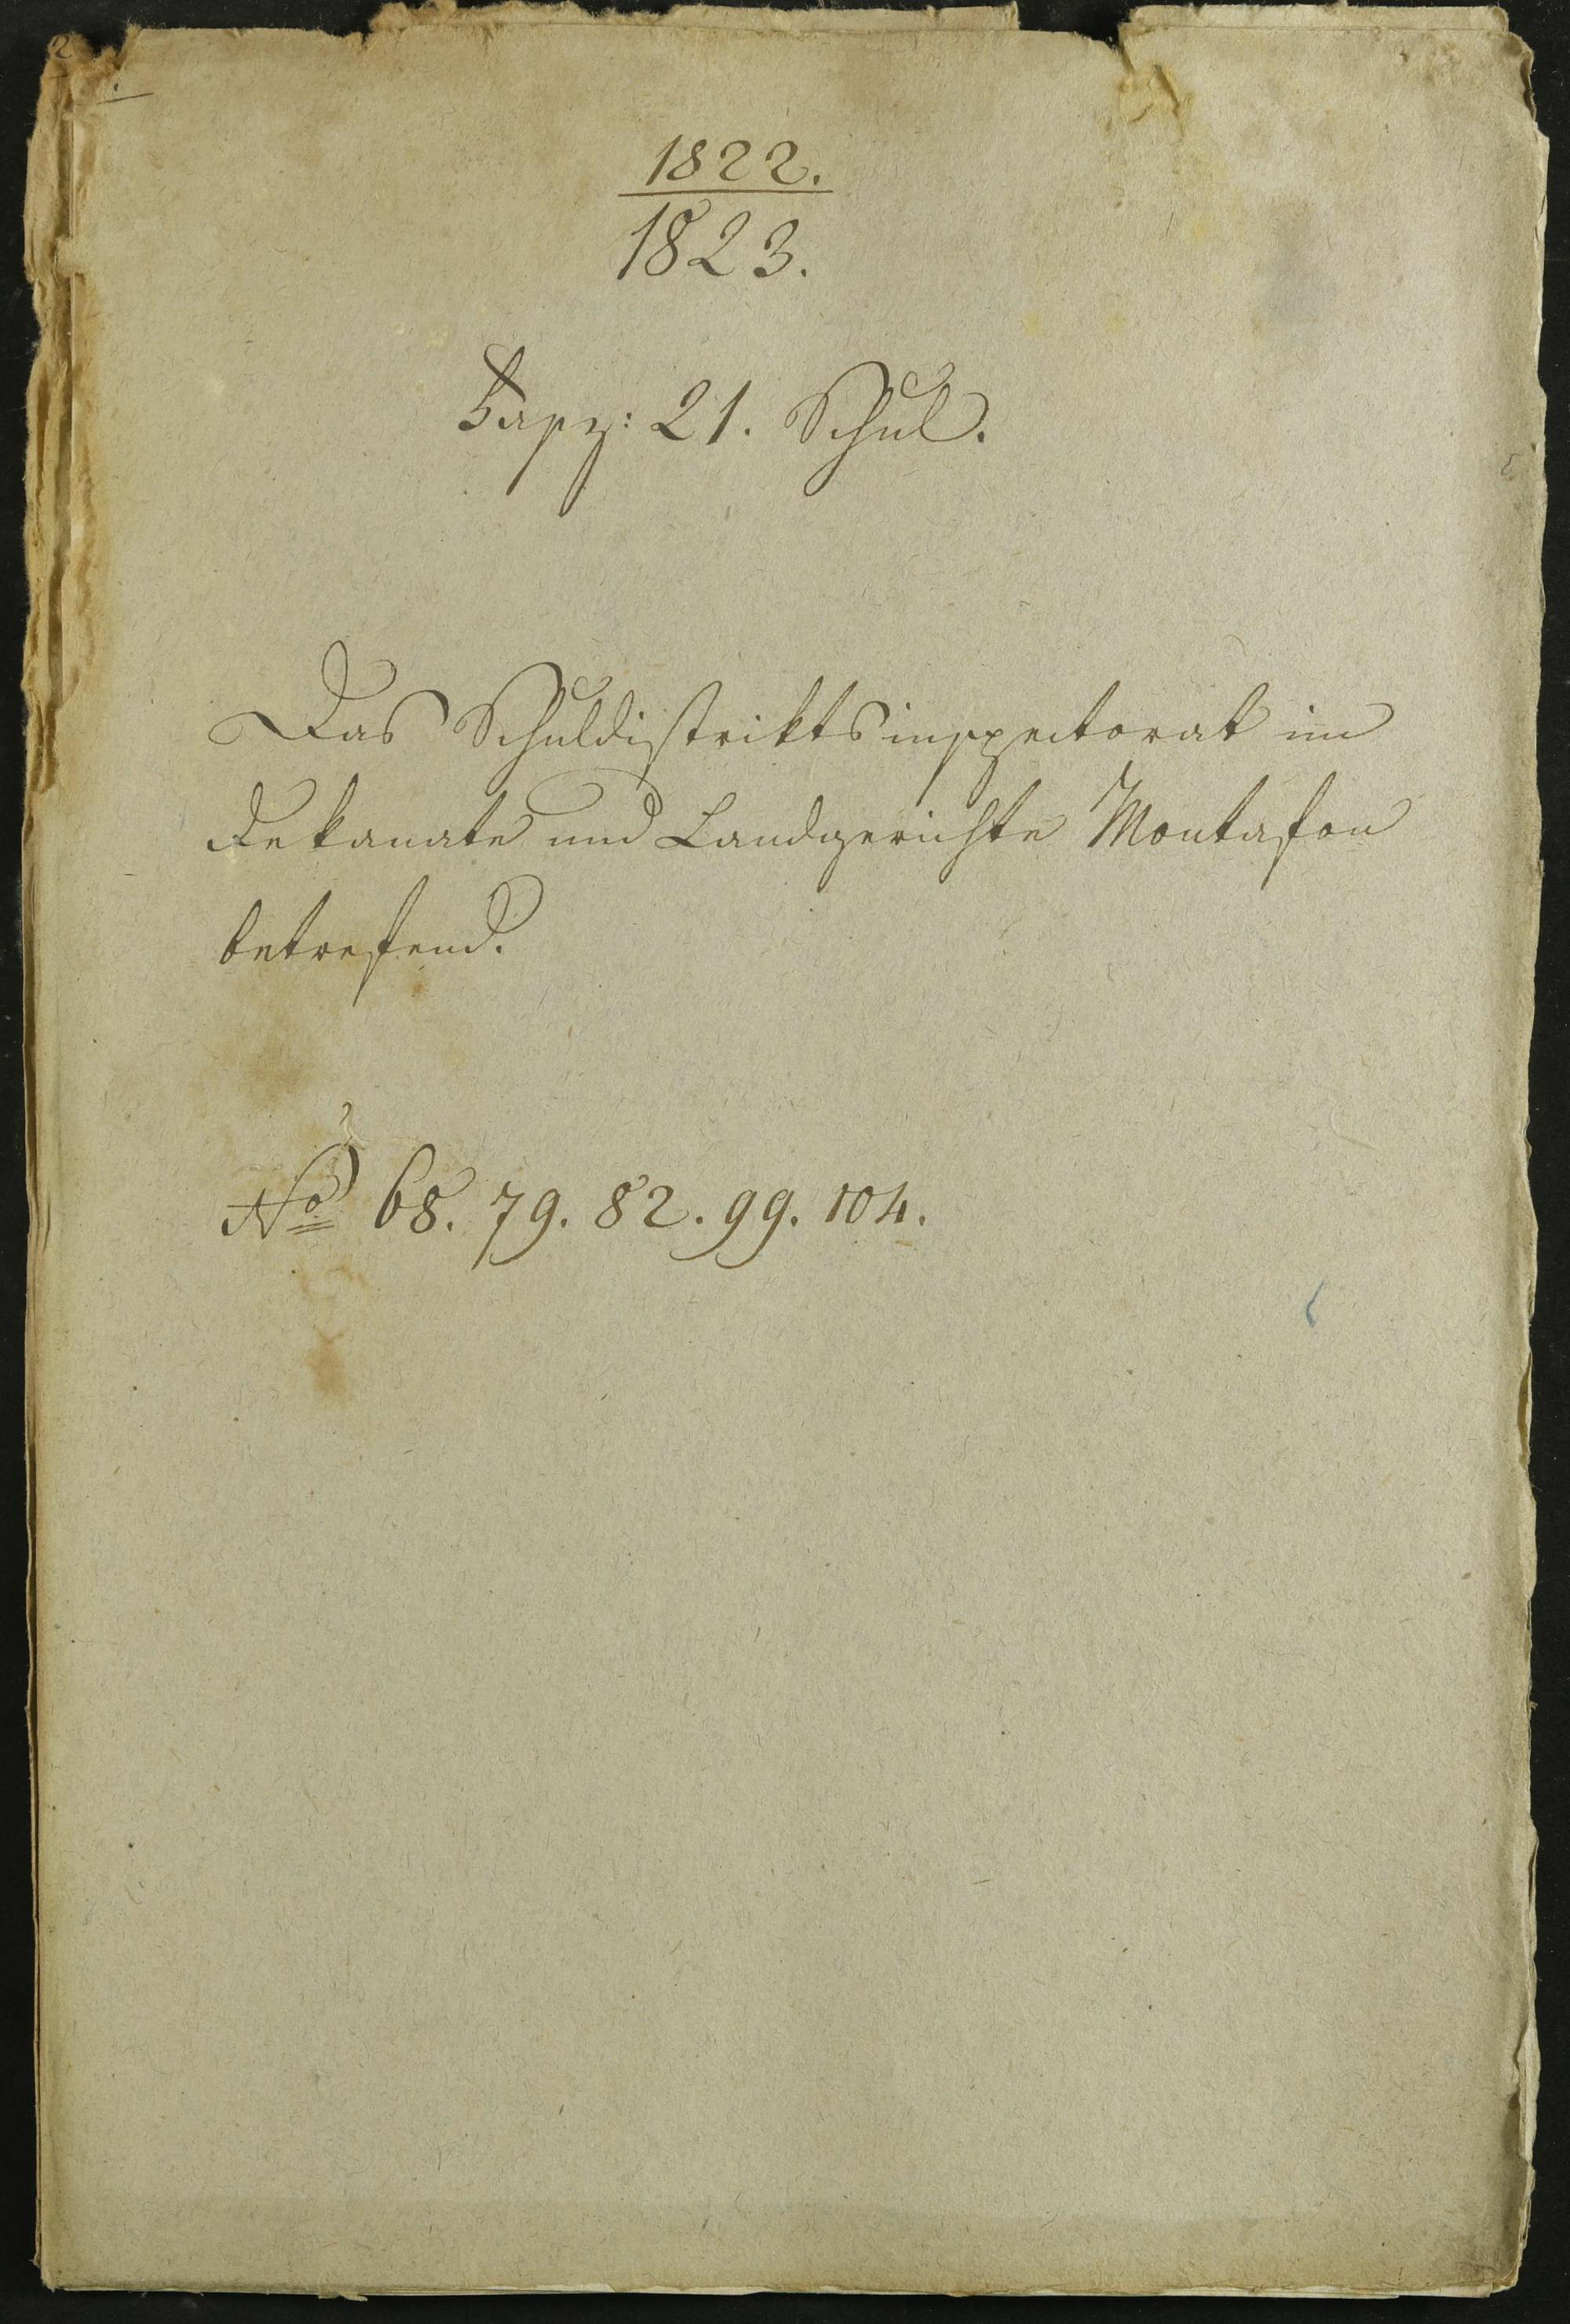 2
1822.
1823.
Fasz: 21. Schul.
Das Schuldistriktsinspectorat im
Dekanate und Landgerichte Montafon
betrefend.
No 68. 79. 82. 99. 104.